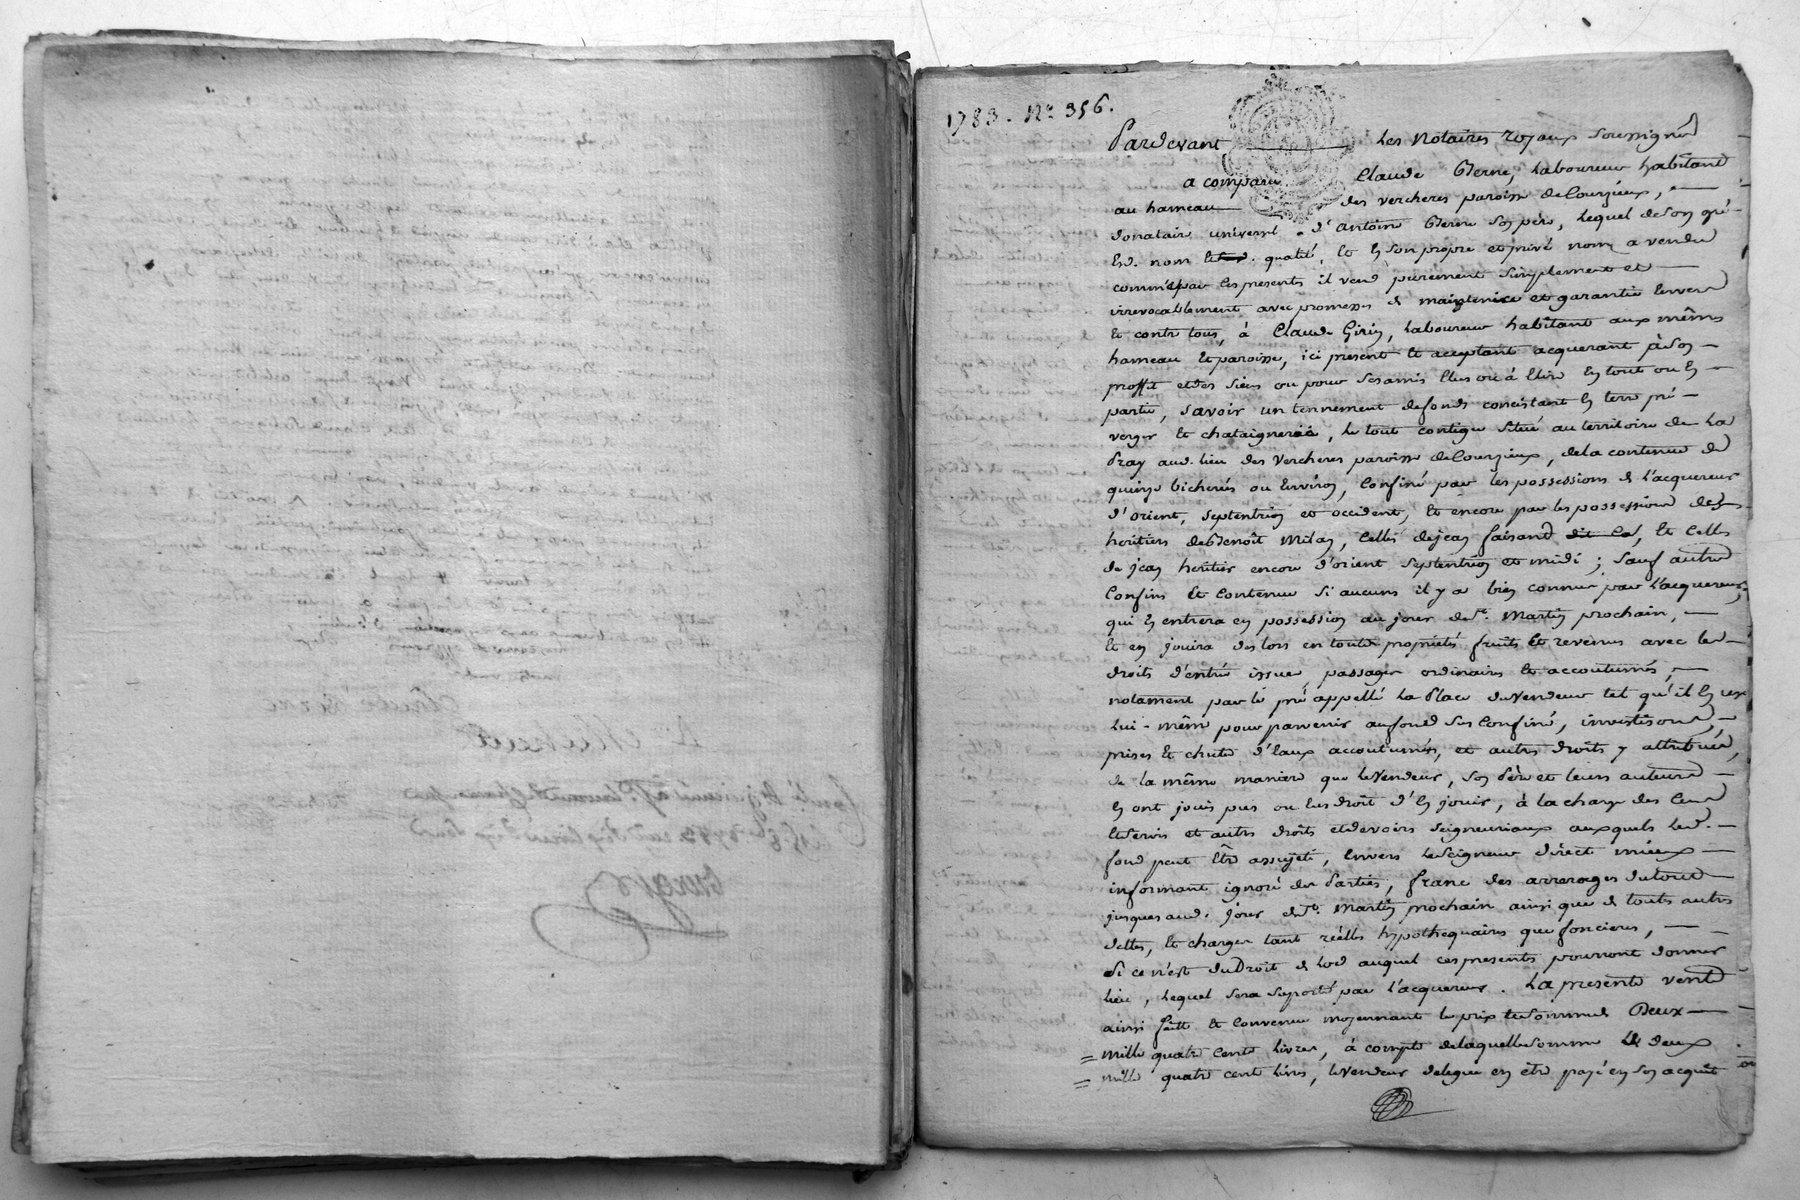 1783. N.° 356.
Pardevant Les Notaires royaux soussignés
a comparu Claude Berne, Laboureur habitant
au hameau des vercheres paroisse de Courzieux,
donataire universel d'Antoine Berne son père, lequel de son gré
esd. nom et qualité, et en son propre et privé nom a vendu
comme par ces presentes il vend purement simplement et
irrevocablement avec promesses de maintenue et garantie envers
et contre tous, à Claude Girin, Laboureur habitant aux mêmes
hameau et paroisse, ici present et acceptant acquerant pour son
proffit et des siens ou pour ses amis élus ou à élire en tout ou en
partie, savoir un tennement de fonds consistant en terre pré
verger et chataigneraie, le tout contigu situé au territoire de La
Pray aud. lieu des Vercheres paroisse de Courzieux, de la contenue de
quinze bicherées ou environ, confiné par les possessions de l'acquereur
d'orient, septentrion et occident, et encore par les possessions des
heritiers de Benoît Milan, celles de jean faisand dit , et celles
de jean heritier encore d'orient septentrion et midi; sauf autres
confins et contenue si aucuns il y a bien connus par l'acquereur;
qui en entrera en possession au jour de S.t Martin prochain,
et en jouira des lors en toute propriété fruits et revenus avec les
droits d'entrée issue, passages ordinaires et accoutumés,
notament par le pré appellé La Place du Vendeur tel qu'il en use
lui-même pour parvenir au fond sus confiné, investisons,
prises et chute d'eaux accoutumées, et autres droits y attribués,
de la même maniere que le Vendeur, son Père et leurs auteurs
en ont joui pus ou eus droit d'en jouir, à la charge des Cens
et servis et autres droits et devoirs seigneuriaux auxquels led.
fond peut être assujeti, envers le seigneur direct mieux
informant ignoré des Parties, franc des arrerages du tout
jusques aud. jour de S.t Martin prochain ainsi que de toutes autres
dettes, et charges tant réelles hypothequaires que foncieres,
si ce n'est du Droit de lod auquel ces presentes pourront donner
lieu, lequel sera suporté par l'acquereur. La presente vente
ainsi faite et convenue moyennant le prix et somme de Deux
= mille quatre cents Livres, à compte de laquelle somme de deux
= mille quatre cent livres, le vendeur delegue en être payé en son acquit